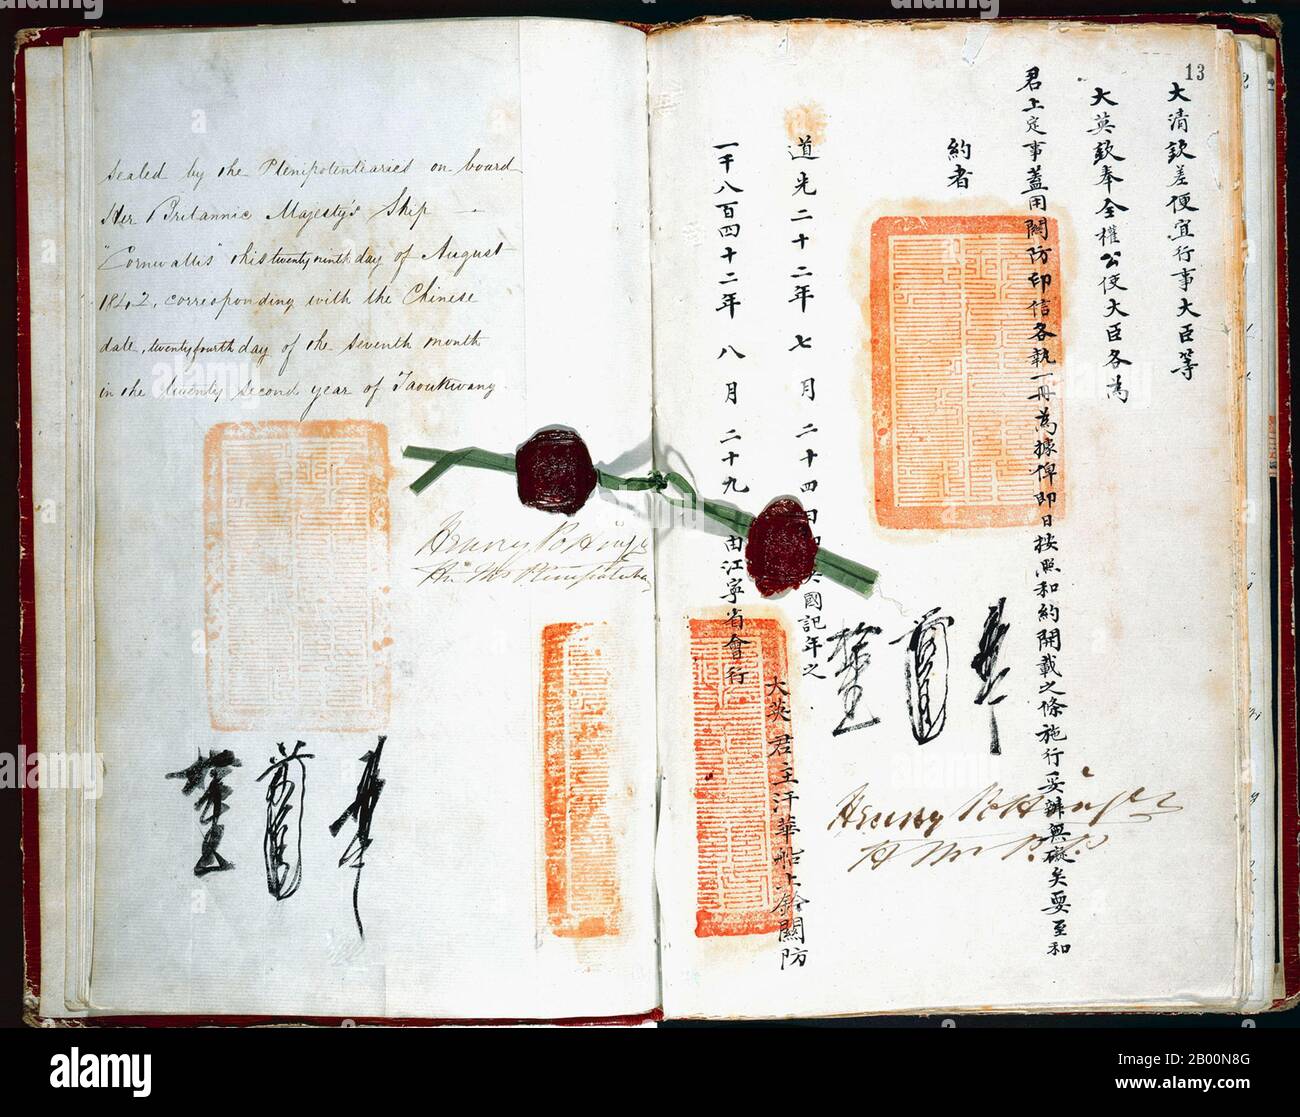 sealed by the Plenipotentiaries on board
Her Britannic Majesty's Ship
"Cornwallis" this twenty ninth day of August
1842, corresponding with the Chinese
date, twenty fourth day of the seventh month
in the twenty second year of Taoukwang
Henry Pottinger
13
大清欽差便宜行事大臣等
大英欽奉全權公使大臣各為
君上定事蓋用關防印信各執一冊為據俾即日按照和約開載之條施行妥辦無礙矣要至和
約者
道光二十二年七月二十四日 英國記年之
一千八百四十二年八月二十九 由江寧省會行
大英 君主汗華船上鈐關防
Henry Pottinger
alamy
alamy
Image ID: 2B00N8G
www.alamy.com